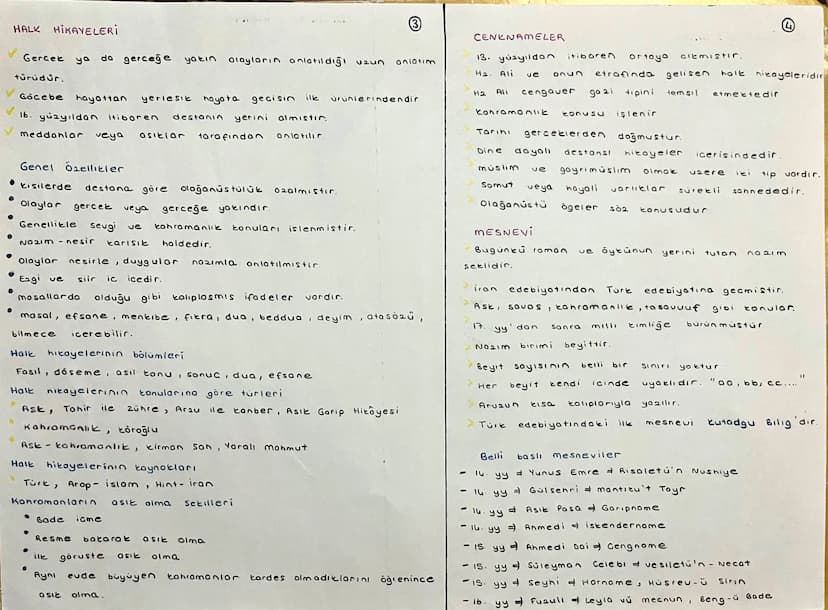 3
HALK HİKAYELERİ
Gerçek ya da gerçeğe yakın olayların anlatıldığı uzun anlatım
türüdür.
Göçebe hayattan yerleşik hayata geçişin ilk ürünlerindendir
16. yüzyıldan itibaren destanın yerini almıştır.
meddahlar veya aşıklar tarafından anlatılır
Genel Özellikler
• Kişilerde destana göre olağanüstülük azalmıştır.
• Olaylar gerçek veya gerçeğe yakındır
• Genellikle sevgi ve kahramanlık konuları işlenmiştir.
• Nazım-nesir karışık haldedir.
• Olaylar nesirle, duygular nazımla anlatılmıştır
• Ezgi ve şiir iç içedir.
• masallarda olduğu gibi kalıplaşmış ifadeler vardır.
• masal, efsane, menkıbe, fıkra, dua, beddua, deyim, atasözü,
bilmece içerebilir.
Halk hikayelerinin bölümleri
Fasıl, döşeme, asıl konu, sonuç, dua, efsane
Halk hikayelerinin konularına göre türleri
• Aşk, Tahir ile Zühre, Arzu ile Kanber, Aşık Garip Hikâyesi
• Kahramanlık, Köroğlu
• Aşk-kahramanlık, Kirman Şah, Yaralı Mahmut
Halk hikayelerinin kaynakları
• Türk, Arap-İslam, Hint-İran
Kahramanların aşık olma şekilleri
• Bade içme
• Resme bakarak aşık olma
• İlk görüşte aşık olma
• Aynı evde büyüyen kahramanlar kardeş olmadıklarını öğrenince
aşık olma.
4
CENKNAMELER
> 13. yüzyıldan itibaren ortaya çıkmıştır.
> Hz. Ali ve onun etrafında gelişen halk hikayeleridir
> Hz Ali cengaver gazi tipini temsil etmektedir
> Kahramanlık konusu işlenir
> Tarihi gerçeklerden doğmuştur.
> Dine dayalı destansı hikayeler içerisindedir.
> müslim ve gayrimüslim olmak üzere iki tip vardır.
> Somut veya hayali varlıklar sürekli sahnededir.
> Olağanüstü öğeler söz konusudur
MESNEVİ
> Bugünkü roman ve öykünün yerini tutan nazım
şeklidir.
> İran edebiyatından Türk edebiyatına geçmiştir.
> Aşk, savaş, kahramanlık, tasavvuf gibi konular.
> 17. yy'dan sonra milli kimliğe bürünmüştür
> Nazım birimi beyittir.
> Beyit sayısının belli bir sınırı yoktur
> Her beyit kendi içinde uyaklıdır. "aa, bb, cc...."
> Aruzun kısa kalıplarıyla yazılır.
> Türk edebiyatındaki ilk mesnevi Kutadgu Bilig'dir.
Belli başlı mesneviler
- 14. yy ⇒ Yunus Emre ⇒ Risaletü'n Nushiye
- 14. yy ⇒ Gülşehri ⇒ mantıku't Tayr
- 14. yy ⇒ Aşık Paşa ⇒ Garipname
- 14. yy ⇒ Ahmedi ⇒ İskendername
- 15. yy ⇒ Ahmedi Dai ⇒ Cengname
- 15. yy ⇒ Süleyman Çelebi ⇒ Vesiletü'n-Necat
- 15. yy ⇒ Şeyhi ⇒ Harname, Hüsrev-ü Şirin
- 16. yy ⇒ Fuzuli ⇒ Leyla vü mecnun, Beng-ü Bade